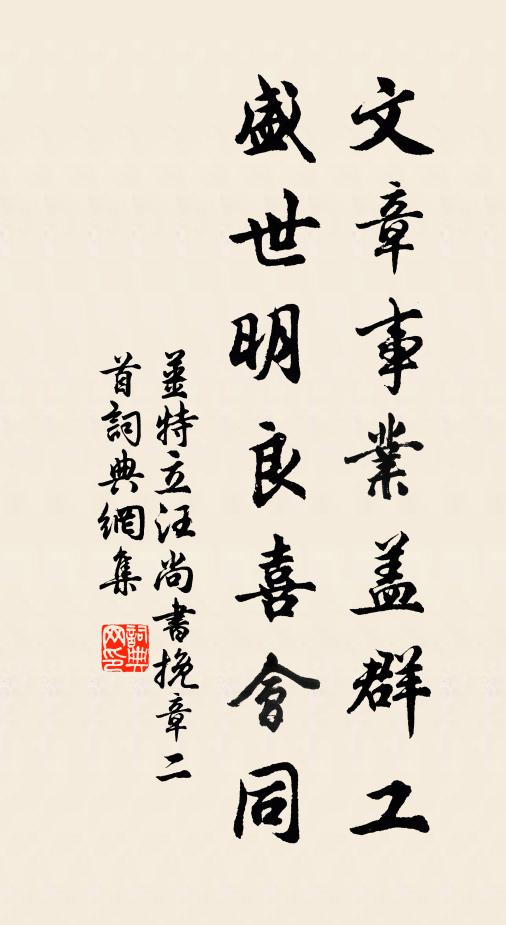 文章事業盖群工
盛世明良喜會同
姜特立汪尚書挽章二
首詞典網集
詞典網印